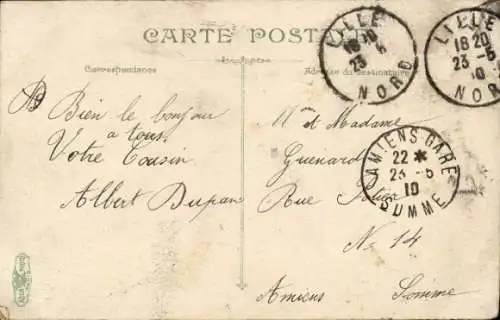 CARTE POSTALE
Correspondance
Adresse du Destinataire
LILLE
18 20
23 - 5
10
NORD
LILLE
18 20
23 - 5
10
NORD
AMIENS GARE
22 *
23 - 5
10
SOMME
Bien le bonjour
a tous
Votre Cousin
Albert Dupan
Mr et Madame
Guenard
Rue
No 14
Amiens Somme